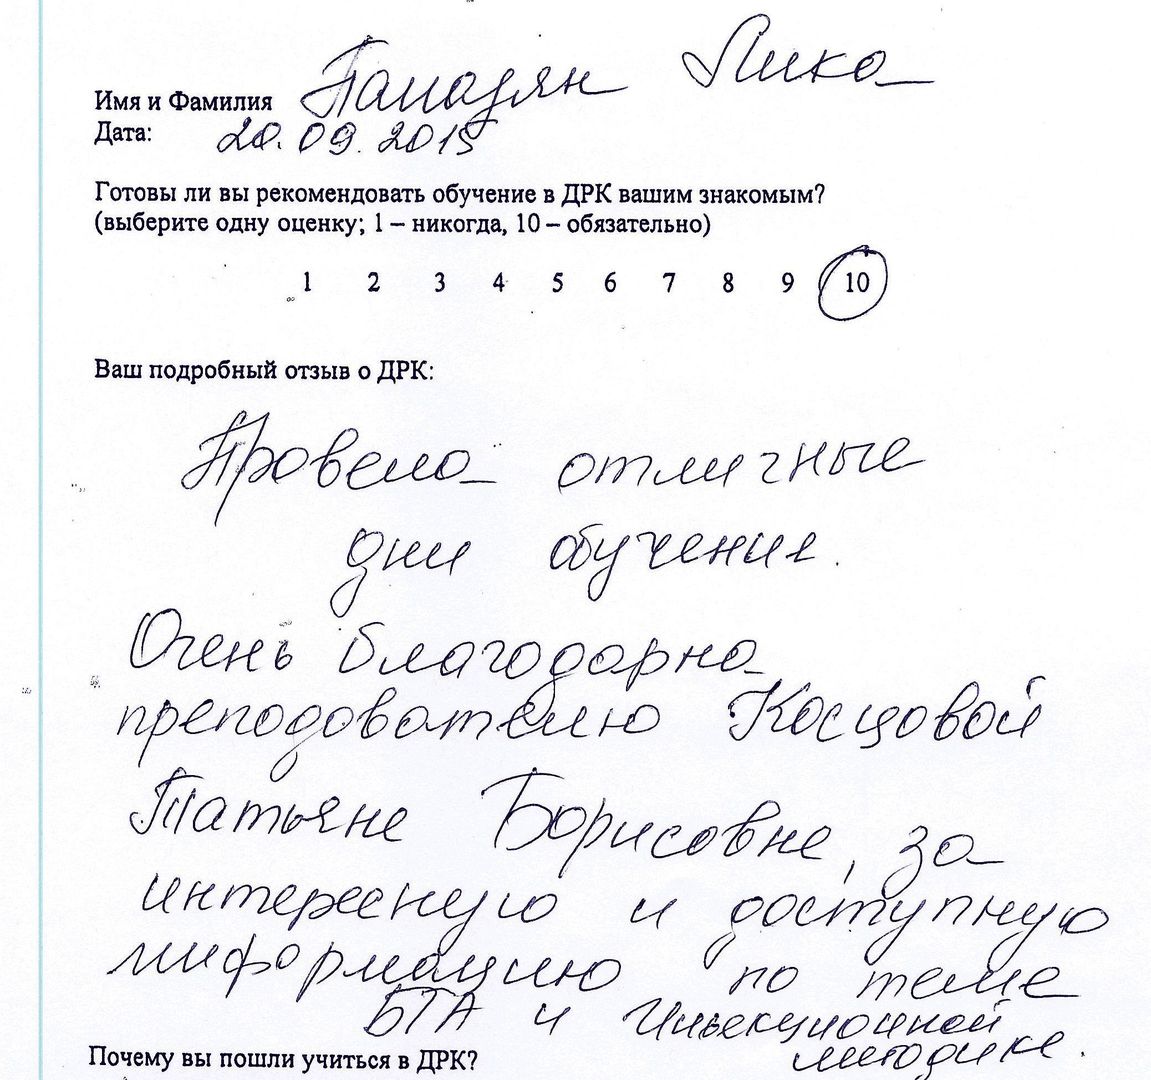 Имя и Фамилия Пападян Лика
Дата: 20.09.2015
Готовы ли вы рекомендовать обучение в ДРК вашим знакомым?
(выберите одну оценку; 1 – никогда, 10 – обязательно)
1 2 3 4 5 6 7 8 9 10
Ваш подробный отзыв о ДРК:
Провела отличные
дни обучения.
Очень благодарна
преподователю Косцовой
Татьяне Борисовне, за
интересную и доступную
информацию по теме
БТА и Инъекционной
методике.
Почему вы пошли учиться в ДРК?